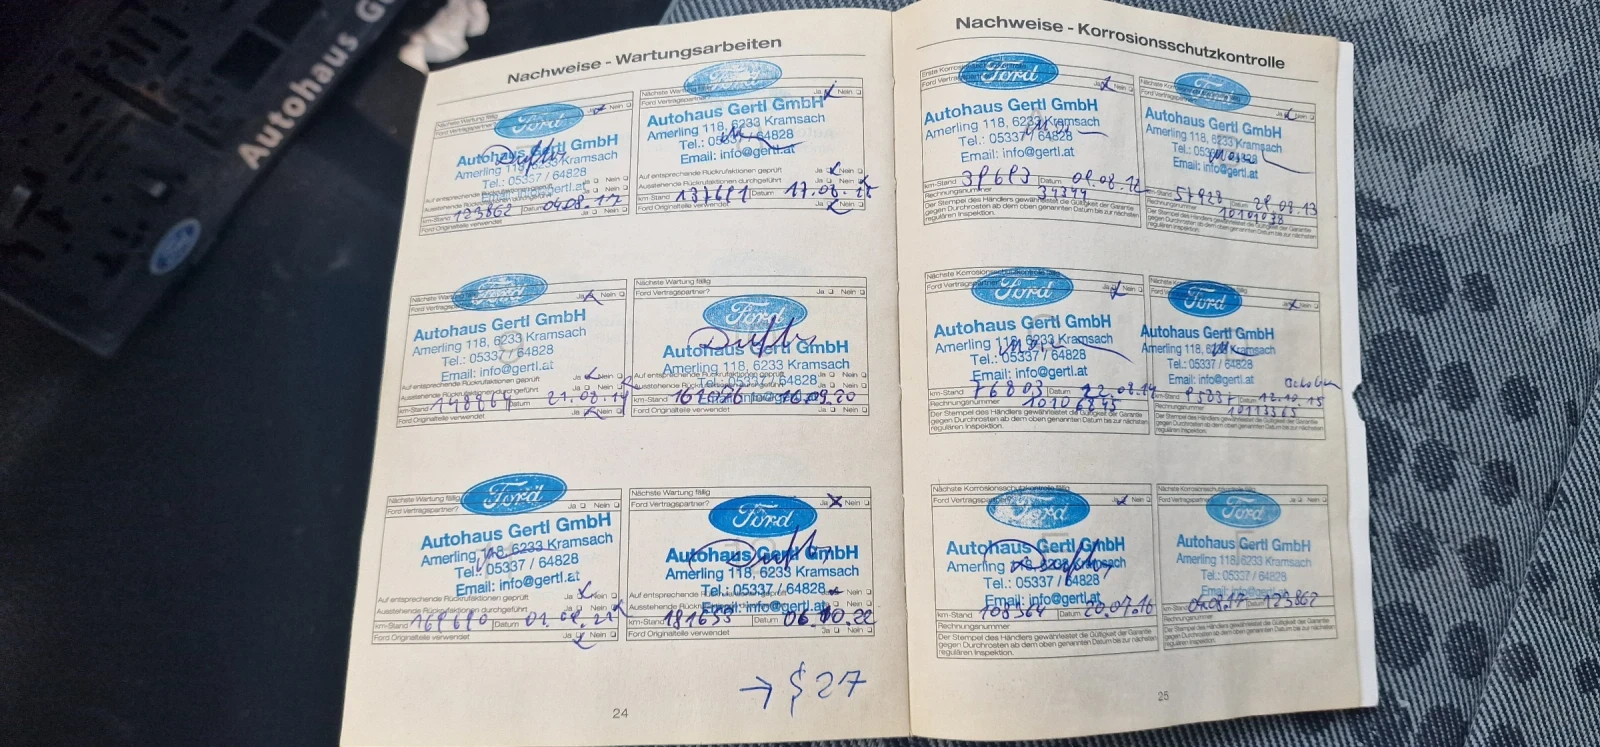 Autohaus G
Nachweise - Wartungsarbeiten
Nächste Wartung fällig
Ford Vertragspartner? Ja Nein
Ford
Autohaus Gertl GmbH
Amerling 118, 6233 Kramsach
Tel.: 05337 / 64828
Auf entsprechende Rückrufaktionen geprüft Ja Nein
Ausstehende Rückrufaktionen durchgeführt Ja Nein
km-Stand 123862 Datum 04.08.17
Ford Originalteile verwendet Ja Nein
Nächste Wartung fällig
Ford Vertragspartner? Ja Nein
Ford
Autohaus Gertl GmbH
Amerling 118, 6233 Kramsach
Tel.: 05337 / 64828
Email: info@gertl.at
Auf entsprechende Rückrufaktionen geprüft Ja Nein
Ausstehende Rückrufaktionen durchgeführt Ja Nein
km-Stand 137691 Datum
Ford Originalteile verwendet Ja Nein
Nächste Wartung fällig
Ford Vertragspartner? Ja Nein
Ford
Autohaus Gertl GmbH
Amerling 118, 6233 Kramsach
Tel.: 05337 / 64828
Email: info@gertl.at
Auf entsprechende Rückrufaktionen geprüft Ja Nein
Ausstehende Rückrufaktionen durchgeführt
km-Stand 148864 Datum
Ford Originalteile verwendet Ja Nein
Nächste Wartung fällig
Ford Vertragspartner? Ja Nein
Ford
Autohaus Gertl GmbH
Amerling 118, 6233 Kramsach
Tel.: 05337 / 64828
info@gertl.at
Auf entsprechende Rückrufaktionen geprüft Ja Nein
Ausstehende Rückrufaktionen durchgeführt Ja Nein
km-Stand Datum
Ford Originalteile verwendet Ja Nein
Nächste Wartung fällig
Ford Vertragspartner? Ja Nein
Ford
Autohaus Gertl GmbH
Amerling 118, 6233 Kramsach
Tel.: 05337 / 64828
Email: info@gertl.at
Auf entsprechende Rückrufaktionen geprüft Ja Nein
Ausstehende Rückrufaktionen durchgeführt Ja Nein
km-Stand 169690 Datum 01.09.21
Ford Originalteile verwendet Ja Nein
Nächste Wartung fällig
Ford Vertragspartner? Ja Nein
Ford
Autohaus Gertl GmbH
Amerling 118, 6233 Kramsach
Tel.: 05337 / 64828
Email: info@gertl.at
Auf entsprechende Rückrufaktionen geprüft
Ausstehende Rückrufaktionen Ja Nein
km-Stand 181655 Datum 06.10.22
Ford Originalteile verwendet Ja Nein
→ S 27
24
Nachweise - Korrosionsschutzkontrolle
Ja Nein
Ford
Autohaus Gertl GmbH
Amerling 118, 6233 Kramsach
Tel.: 05337 / 64828
Email: info@gertl.at
km-Stand 39693 Datum 09.08.12
Rechnungsnummer 34344
Der Stempel des Händlers gewährleistet die Gültigkeit der Garantie
gegen Durchrosten ab dem oben genannten Datum bis zur nächsten
regulären Inspektion.
Ja Nein
Ford
Autohaus Gertl GmbH
Amerling 118, 6233 Kramsach
Email: info@gertl.at
km-Stand 57928 Datum
Rechnungsnummer
Der Stempel des Händlers gewährleistet die Gültigkeit der Garantie
gegen Durchrosten ab dem oben genannten Datum bis zur nächsten
regulären Inspektion.
Nächste Korrosionsschutzkontrolle fällig
Ford Vertragspartner? Ja Nein
Ford
Autohaus Gertl GmbH
Amerling 118, 6233 Kramsach
Tel.: 05337 / 64828
Email: info@gertl.at
km-Stand 76803 Datum 22.08.14
Rechnungsnummer
Der Stempel des Händlers gewährleistet die Gültigkeit der Garantie
gegen Durchrosten ab dem oben genannten Datum bis zur nächsten
regulären Inspektion.
Ja Nein
Ford
Autohaus Gertl GmbH
Amerling 118, 6233 Kramsach
Tel.: 05337 / 64828
Email: info@gertl.at
Oktober
km-Stand Datum 12.10.15
Rechnungsnummer 10113565
Der Stempel des Händlers gewährleistet die Gültigkeit der Garantie
gegen Durchrosten ab dem oben genannten Datum bis zur nächsten
regulären Inspektion.
Nächste Korrosionsschutzkontrolle fällig
Ford Vertragspartner? Ja Nein
Ford
Autohaus Gertl GmbH
Amerling 118, 6233 Kramsach
Tel.: 05337 / 64828
Email: info@gertl.at
km-Stand 108364 Datum 20.07.16
Rechnungsnummer
Der Stempel des Händlers gewährleistet die Gültigkeit der Garantie
gegen Durchrosten ab dem oben genannten Datum bis zur nächsten
regulären Inspektion.
Nächste Korrosionsschutzkontrolle fällig
Ford Vertragspartner? Ja Nein
Ford
Autohaus Gertl GmbH
Amerling 118, 6233 Kramsach
Tel.: 05337 / 64828
Email: info@gertl.at
km-Stand 04.08.17 Datum 123862
Rechnungsnummer
Der Stempel des Händlers gewährleistet die Gültigkeit der Garantie
gegen Durchrosten ab dem oben genannten Datum bis zur nächsten
regulären Inspektion.
25